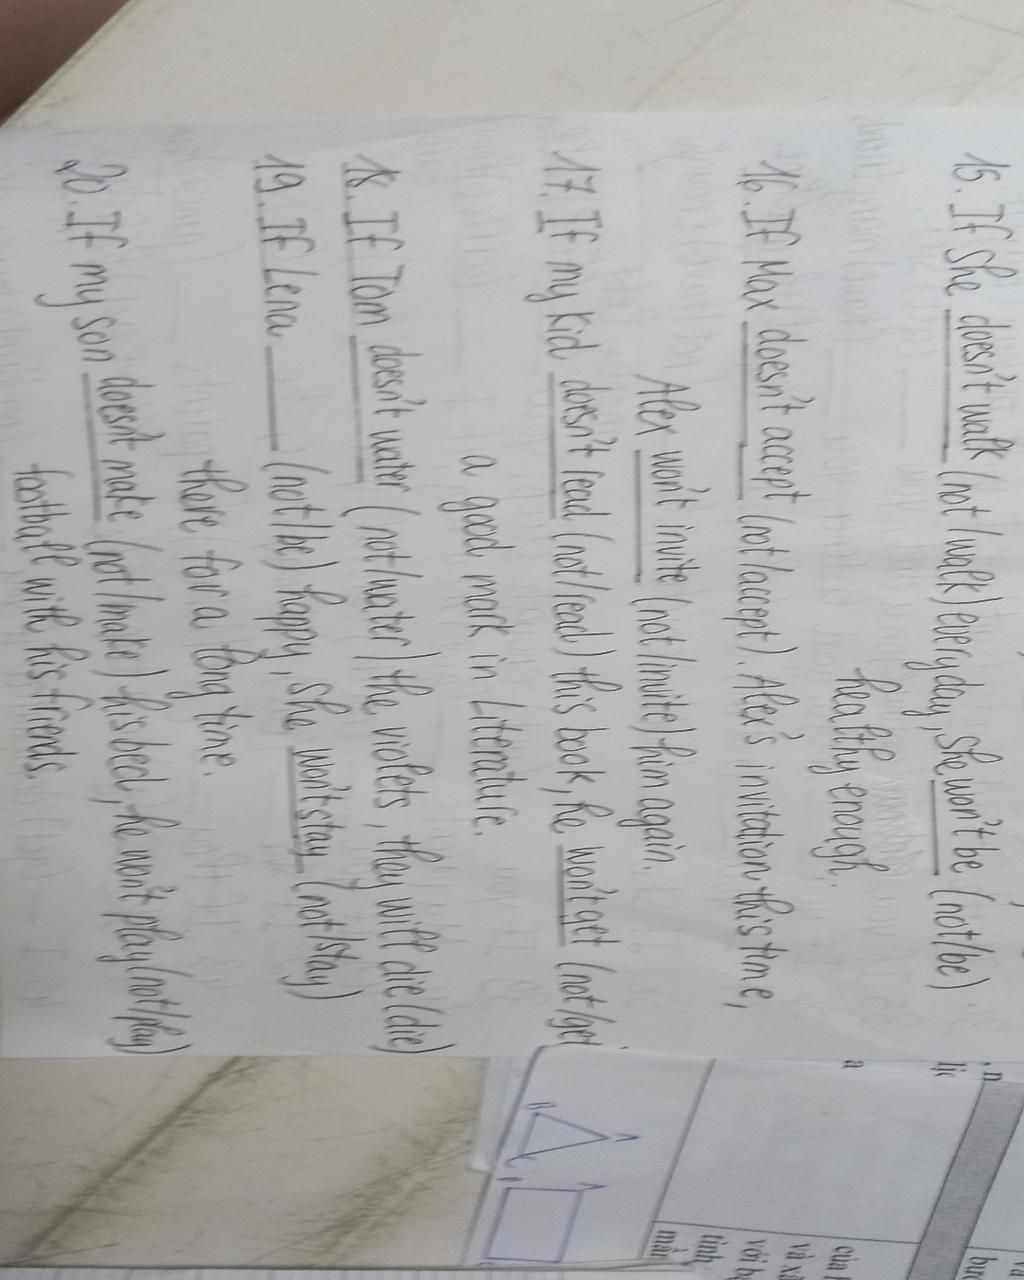 15. If she doesn't walk (not/walk) everyday, she won't be (not/be)
healthy enough.
16. If Max doesn't accept (not/accept). Alex's invitation this time,
Alex won't invite (not/invite) him again.
17. If my kid doesn't read (not/read) this book, he won't get (not/get
a good mark in Literature.
18. If Tom doesn't water (not/water) the violets, they will die (die)
19. If Lena ____ (not/be) happy, she won't stay (not/stay)
there for a long time.
20. If my son doesn't make (not/make) his bed, he won't play (not/play)
football with his friends
a
của
và x
với
tính
màn
A
B
C